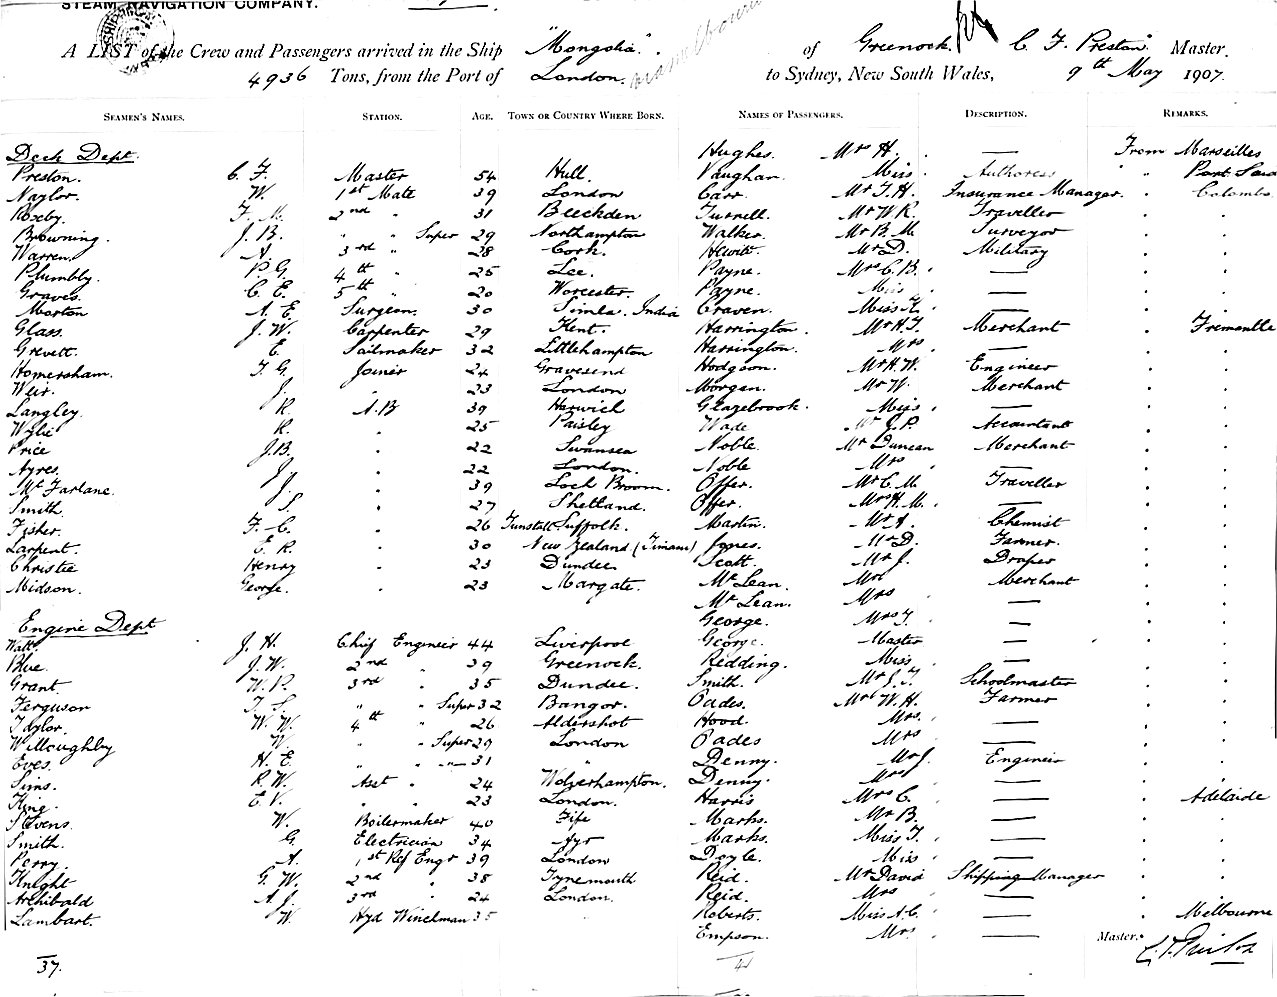 STEAM NAVIGATION COMPANY.
A LIST of the Crew and Passengers arrived in the Ship "Mongolia". of Greenock. C. F. Preston. Master.
4936 Tons, from the Port of London. to Sydney, New South Wales, 9th May 1907.
SEAMEN'S NAMES. STATION. AGE. TOWN OR COUNTRY WHERE BORN. NAMES OF PASSENGERS. DESCRIPTION. REMARKS.
Deck Dept.
Preston. C. F. Master 54 Hull.
Naylor. W. 1st Mate 39 London
Roxby. F. M. 2nd " 31 Beeckden
Browning. J. B. " " Super 29 Northampton
Warren. A. 3rd " 28 Cork.
Plumbly. P. G. 4th " 25 Lee.
Graves. C. E. 5th " 20 Worcester.
Morton A. E. Surgeon. 30 Simla. India
Glass. J. W. Carpenter 29 Kent.
Grevett. E. Sailmaker 32 Littlehampton
Homersham. T. G. Joiner 24 Gravesend
Weir. J. " 23 London
Langley. R. A.B 39 Harwich
Wylie R. " 25 Paisley
Price J.B. " 22 Swansea
Ayres. J. " 22 London.
McFarlane. J. " 39 Loch Broom.
Smith. S. " 27 Shetland.
Fisher. F. C. " 26 Tunstall Suffolk.
Larpent. E. R. " 30 New Zealand (Timaru)
Christie Henry " 23 Dundee
Midson. George. " 23 Margate.
Engine Dept
Watt. J. H. Chief Engineer 44 Liverpool
Blue. J. W. 2nd " 39 Greenock.
Grant. W. P. 3rd " 35 Dundee.
Ferguson T. S. " " Super 32 Bangor.
Taylor. W. W. 4th " 26 Aldershot
Willoughby W. " " Super 29 London
Eves. H. E. " " " 31 "
Sims. R. W. Asst " 24 Wolverhampton.
King. E. V. " " 23 London.
Stevens W. Boilermaker 40 Fife
Smith. G. Electrician 34 Ayr
Perry. A. 1st Ref Engr 39 London
Knight G. W. 2nd " 38 Tynemouth
Archibald A. J. 3rd " 24 London.
Lambart. W. Hyd Winchman 35
37.
Hughes. Mrs H. — From Marseilles
Vaughan. Miss. Authoress " " Port Said
Carr. Mr T. H. Insurance Manager. " Colombo
Turnell. Mr W. R. Traveller
Walker. Mr B. M. Surveyor
Hewitt. Mr D. Military
Payne. Mrs C. B. —
Payne. Miss —
Craven. Miss K. —
Harrington. Mr H. T. Merchant " Fremantle
Harrington. Mrs —
Hodgson. Mr H. W. Engineer
Morgan. Mr W. Merchant
Glazebrook. Miss —
Wade Mr J. P. Accountant
Noble. Mr Duncan Merchant
Noble Mrs —
Offer. Mr C. M. Traveller
Offer. Mrs H. M. —
Martin. Mr A. Chemist
Jones. Mr D. Farmer.
Scott. Mr J. Draper
McLean. Merchant
McLean. Mrs —
George. Mrs T. —
George. Master —
Redding. Miss —
Smith. Mr J. T. Schoolmaster
Oades. Mr W. H. Farmer
Hood. Mrs. —
Oades Mrs —
Denny. Mr J. Engineer
Denny. Mrs —
Harris Mrs C. — " Adelaide
Marks. Mr B. —
Marks. Miss T. —
Doyle. Miss —
Reid. Mr David Shipping Manager
Reid. Mrs —
Roberts. Miss A. C. — " Melbourne
Empson. Mrs. —
41
Master.